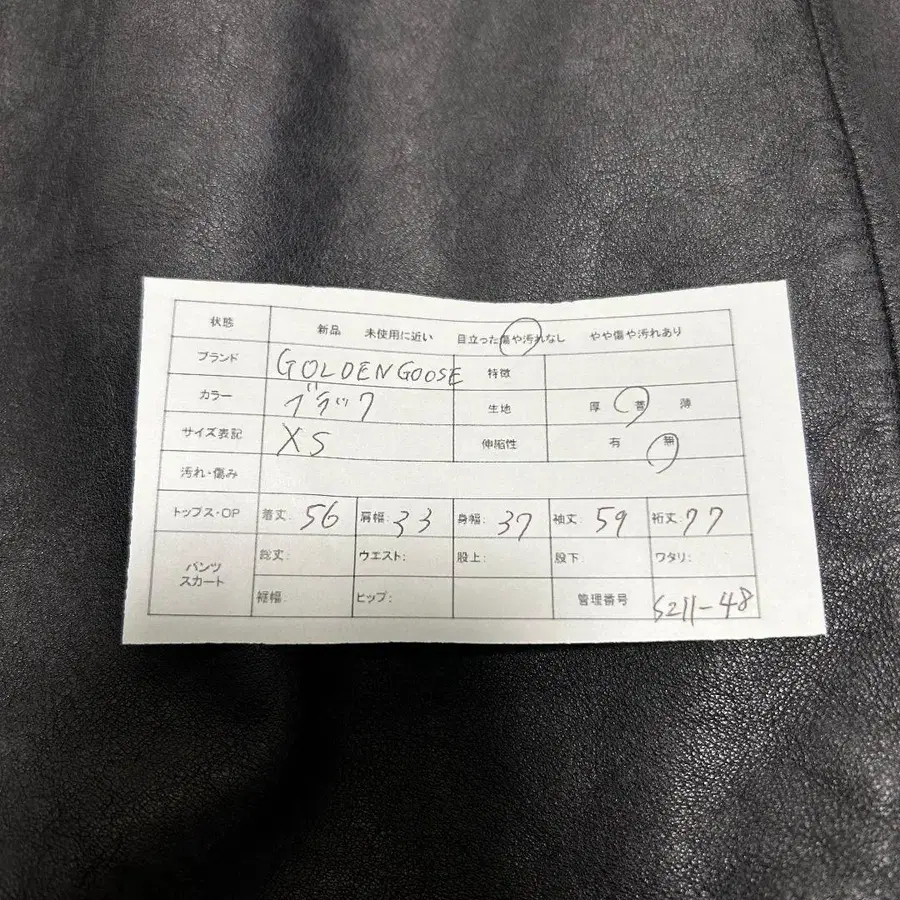 状態 新品 未使用に近い 目立った傷や汚れなし やや傷や汚れあり
ブランド GOLDEN GOOSE 特徴
カラー ブラック 生地 厚 普 薄
サイズ表記 XS 伸縮性 有 無
汚れ・傷み
トップス・OP 着丈: 56 肩幅: 33 身幅: 37 袖丈: 59 裄丈: 77
パンツ スカート 総丈: ウエスト: 股上: 股下: ワタリ:
裾幅: ヒップ: 管理番号 S211-48